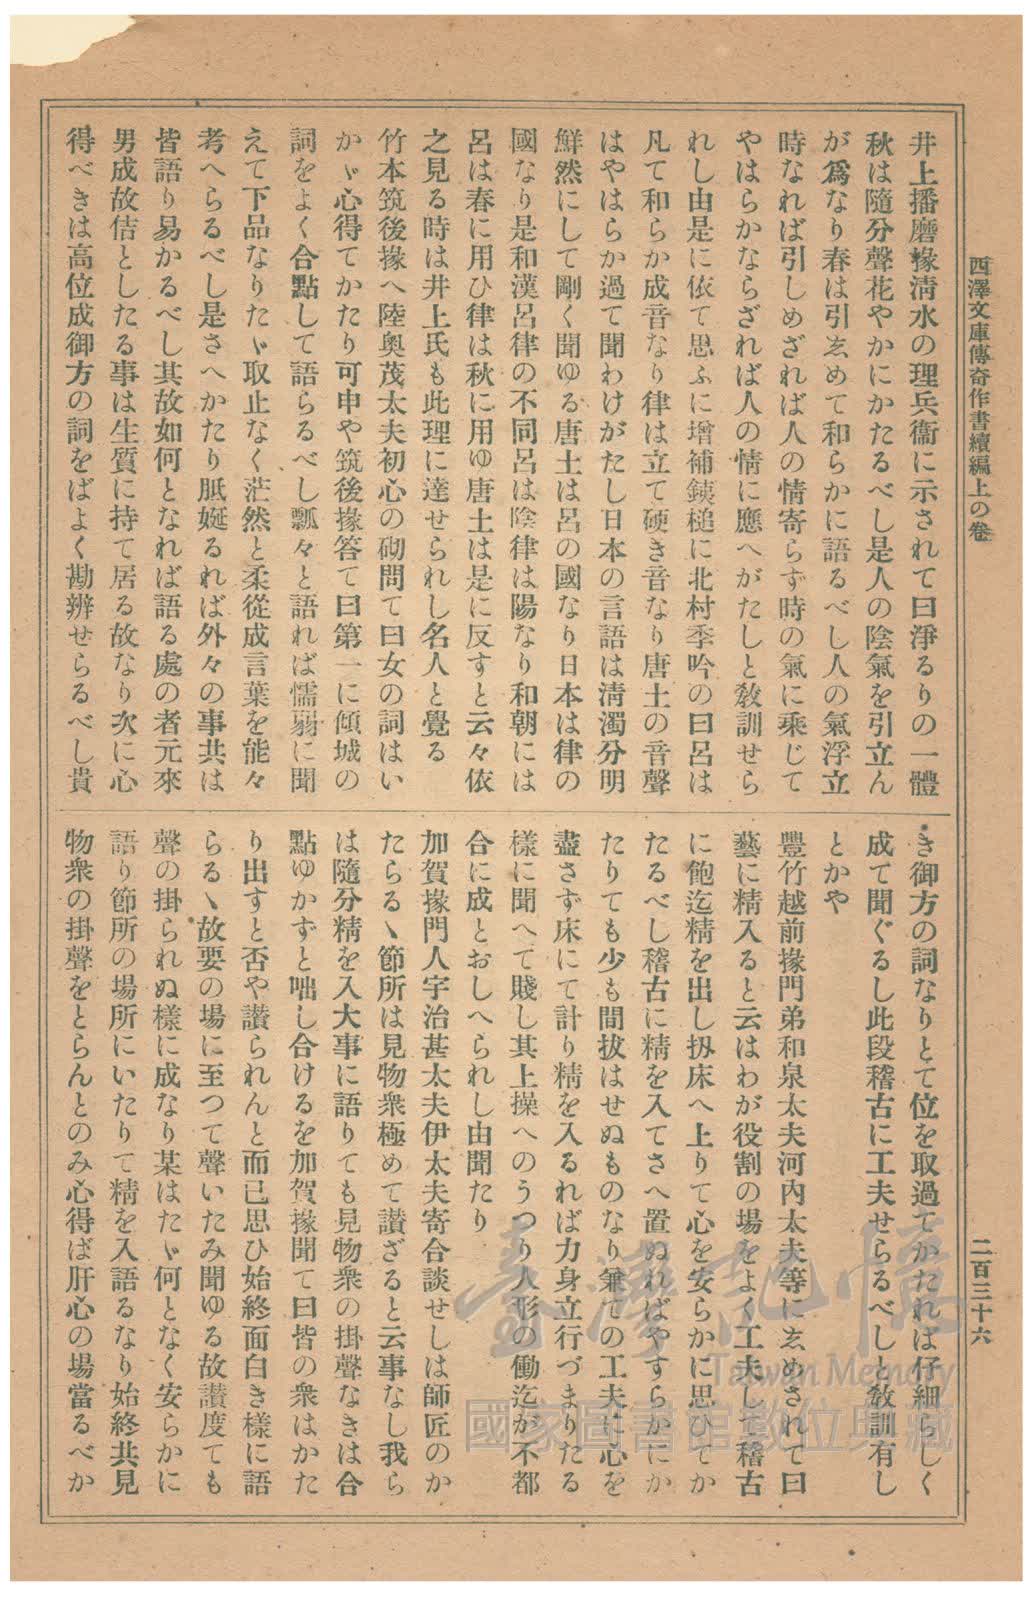 西澤文庫傳奇作書續編上の卷
二百三十六
井上播磨掾淸水の理兵衞に示されて曰淨るりの一體
秋は隨分聲花やかにかたるべし是人の陰氣を引立ん
が爲なり春は引ゑめて和らかに語るべし人の氣浮立
時なれば引しめざれば人の情寄らず時の氣に乘じて
やはらかならざれば人の情に應へがたしと敎訓せら
れし由是に依て思ふに增補銕槌に北村季吟の曰呂は
凡て和らか成音なり律は立て硬き音なり唐土の音聲
はやはらか過て聞わけがたし日本の言語は淸濁分明
鮮然にして剛く聞ゆる唐土は呂の國なり日本は律の
國なり是和漢呂律の不同呂は陰律は陽なり和朝には
呂は春に用ひ律は秋に用ゆ唐土は是に反すと云々依
之見る時は井上氏も此理に達せられし名人と覺る
竹本筑後掾へ陸奥茂太夫初心の砌問て曰女の詞はい
かゞ心得てかたり可申や筑後掾答て曰第一に傾城の
詞をよく合點して語らるべし瓢々と語れば懦弱に聞
えて下品なりたゞ取止なく茫然と柔從成言葉を能々
考へらるべし是さへかたり胝娫るれば外々の事共は
皆語り易かるべし其故如何となれば語る處の者元來
男成故佶としたる事は生質に持て居る故なり次に心
得べきは高位成御方の詞をばよく勘辨せらるべし貴
き御方の詞なりとて位を取過てかたれば仔細らしく
成て聞ぐるし此段稽古に工夫せらるべしと敎訓有し
とかや
豐竹越前掾門弟和泉太夫河內太夫等にゑめされて曰
藝に精入ると云はわが役割の場をよく工夫して稽古
に飽迄精を出し扨床へ上りて心を安らかに思ひてか
たるべし稽古に精を入てさへ置ぬればやすらかにか
たりても少も間拔はせぬものなり兼ての工夫に心を
盡さず床にて計り精を入るれば力身立行づまりたる
樣に聞へて賤し其上操へのうつり人形の働迄が不都
合に成とおしへられし由聞たり
加賀掾門人宇治甚太夫伊太夫寄合談せしは師匠のか
たらるゝ節所は見物衆極めて讃ざると云事なし我ら
は隨分精を入大事に語りても見物衆の掛聲なきは合
點ゆかずと咄し合けるを加賀掾聞て曰皆の衆はかた
り出すと否や讃られんと而已思ひ始終面白き樣に語
らるゝ故要の場に至つて聲いたみ聞ゆる故讃度ても
聲の掛られぬ樣に成なり某はたゞ何となく安らかに
語り節所の場所にいたりて精を入語るなり始終共見
物衆の掛聲をとらんとのみ心得ば肝心の場當るべか
臺灣記憶
Taiwan Memory
國家圖書館數位典藏